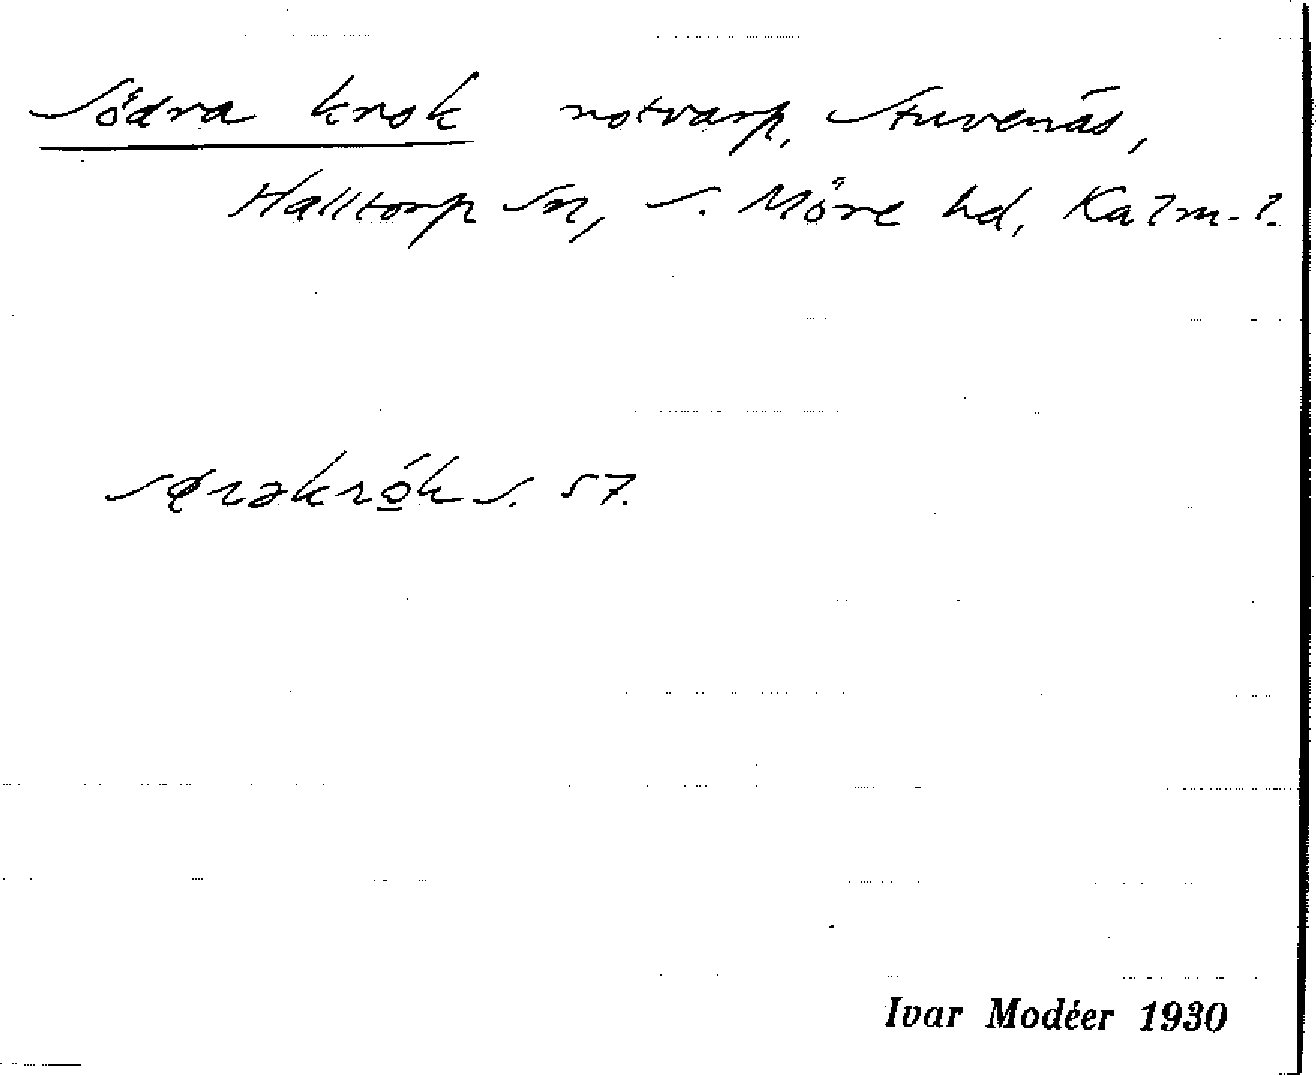 Södra krok notvarp, Stuvenäs,
Halltorp sn, S. Möre hd, Kalm. l.
s. 57.
Ivar Modéer 1930